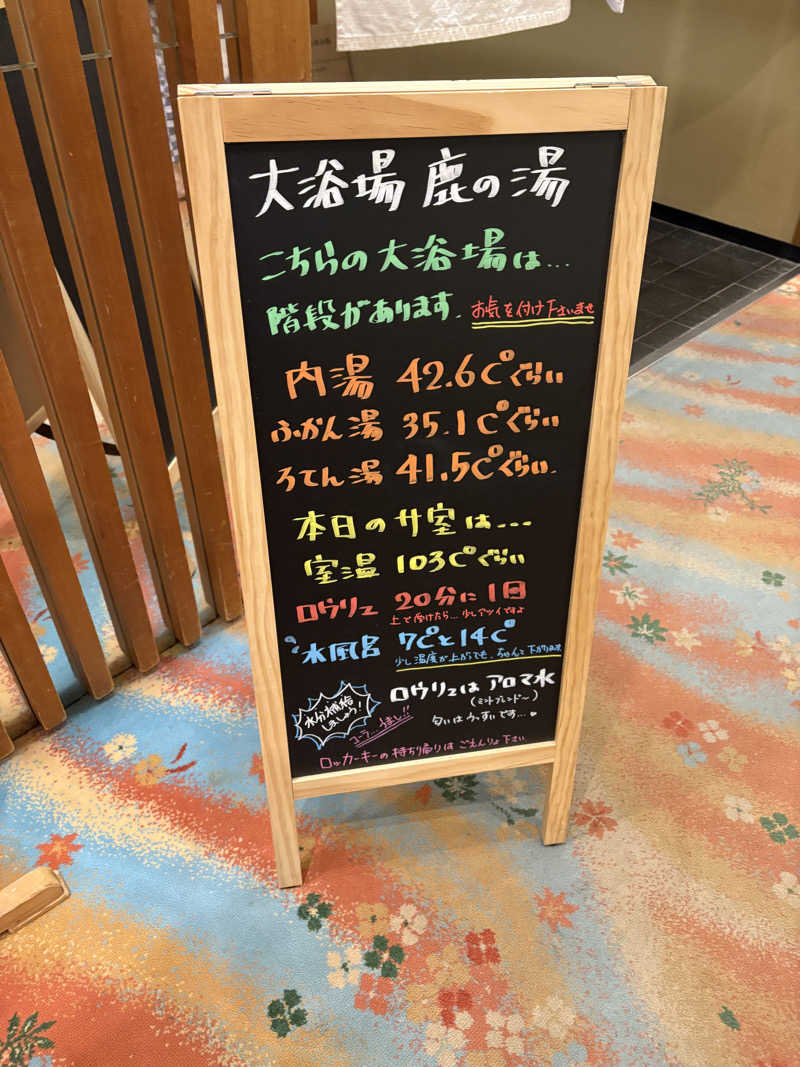 大浴場 鹿の湯
こちらの大浴場は...
階段があります. お気を付け下さいませ
内湯 42.6C°ぐらい
ふかん湯 35.1C°ぐらい
ろてん湯 41.5C°ぐらい.
本日のサ室は...
室温 103C°ぐらい
ロウリュ 20分に1回
上で受けたら...少しアツイですよ
水風呂 7C°と14C°
少し温度が上がっても、ちゃんと下がります
ロウリュは アロマ水
(ミントブレンド〜)
匂いはうっすいです...
水分補給しましょう!
コーラ...うまし!!
ロッカーキーの持ち帰りは ごえんりょ下さい